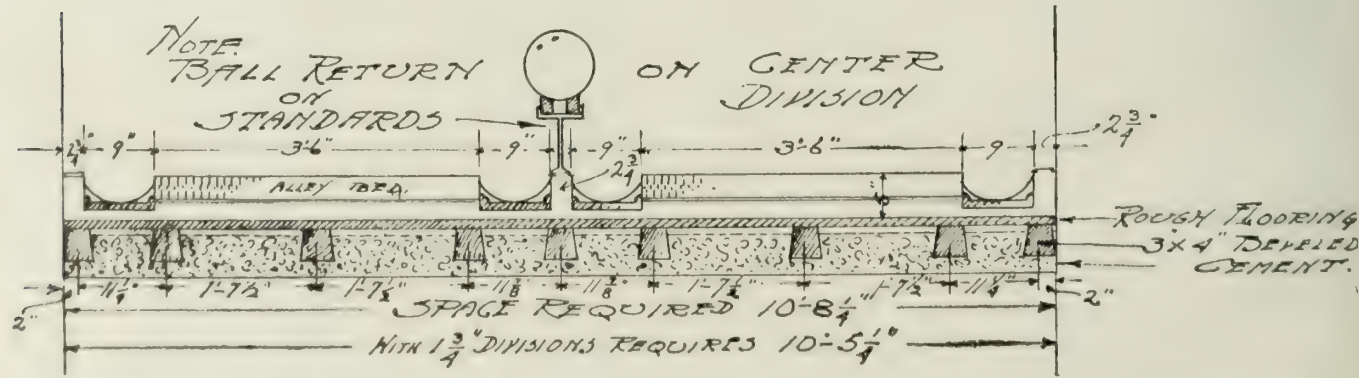 NOTE.
BALL RETURN ON CENTER
ON DIVISION
STANDARDS
2 3/4"
9" 3'-6" 9" 9" 3'-6" 9 2 3/4"
2 3/4
ALLEY BED. 6"
ROUGH FLOORING
3"X4" BEVELED
CEMENT.
11 1/4" 1'-7 1/2" 1'-7 1/2" 11 3/8" 11 3/8" 1'-7 1/2" 1'-7 1/2" 11 1/4"
2" 2"
SPACE REQUIRED 10'-8 1/4"
WITH 1 3/4" DIVISIONS REQUIRES 10'-5 1/4"